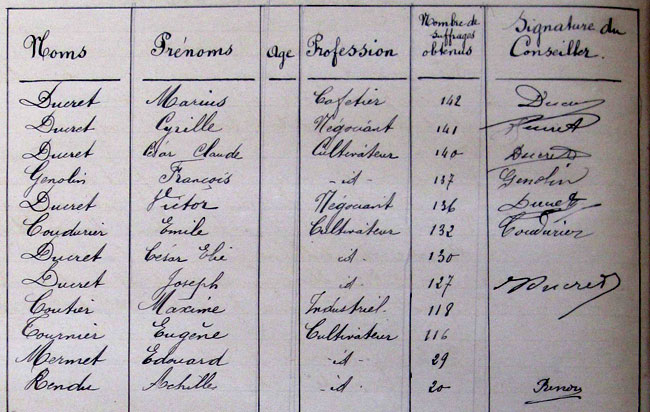 Noms Prénoms Age Profession Nombre de suffrages obtenus Signature du Conseiller.
Ducret Marius Cafetier 142 Ducret
Ducret Cyrille Négociant 141 Ducret
Ducret César Claude Cultivateur 140 Ducret
Genolin François -id- 137 Genolin
Ducret Victor Négociant 136 Ducret
Coudurier Emile Cultivateur 132 Coudurier
Ducret César Elie -id- 130
Ducret Joseph -id- 127 Ducret
Coutier Maxime Industriel 118
Tournier Eugène Cultivateur 116
Mermet Edouard -id- 29
Rendu Achille -id- 20